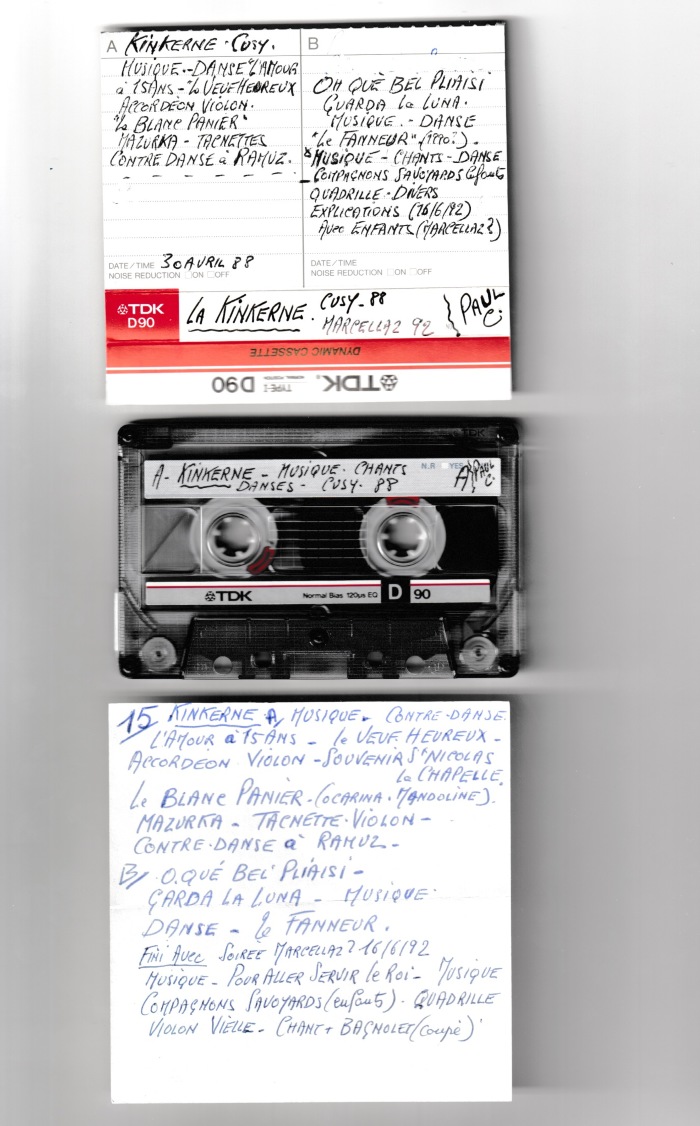 A KINKERNE - CUSY.
MUSIQUE.-DANSE "L'AMOUR
à 15ANS - "le VEUF HEUREUX
ACCORDEON VIOLON.
"le BLANC PANIER"
MAZURKA - TACNETTES
CONTRE DANSE à RAMUZ.
DATE/TIME 30 AVRIL 88
NOISE REDUCTION ON OFF
B
OH QUÉ BEL PLIAISI
GUARDA la LUNA.
MUSIQUE. - DANSE
"Le FANNEUR" (1990?).
MUSIQUE - CHANTS - DANSE
COMPAGNONS SAVOYARDS Enfants
QUADRILLE - DIVERS
EXPLICATIONS (16/6/92)
AVEC ENFANTS (MARCELLAZ?)
DATE/TIME
NOISE REDUCTION ON OFF
TDK
D90
LA KINKERNE.
CUSY - 88
MARCELLAZ 92
PAUL C.
DYNAMIC CASSETTE
TDK. TYPE I NORMAL POSITION D90
TDK
A - KINKERNE - MUSIQUE. CHANTS
DANSES - CUSY. 88
N.R YES
A PAUL C.
TDK Normal Bias 120µs EQ D 90
15 KINKERNE A/ MUSIQUE - CONTRE-DANSE.
L'AMOUR à 15 ANS - le VEUF HEUREUX -
ACCORDEON VIOLON - SOUVENIR St NICOLAS
la CHAPELLE.
Le BLANC PANIER - (OCARINA. MANDOLINE).
MAZURKA - TACNETTE - VIOLON -
CONTRE-DANSE à RAMUZ -
B/ O.QUÉ BEL' PLIAISI -
GARDA LA LUNA - MUSIQUE.
DANSE - Le FANNEUR.
FINI AVEC SOIREE MARCELLAZ? 16/6/92
MUSIQUE - POUR ALLER SERVIR le ROI - MUSIQUE
COMPAGNONS SAVOYARDS (enfants). QUADRILLE
VIOLON VIELLE - CHANT + BAGNOLET (coupé)